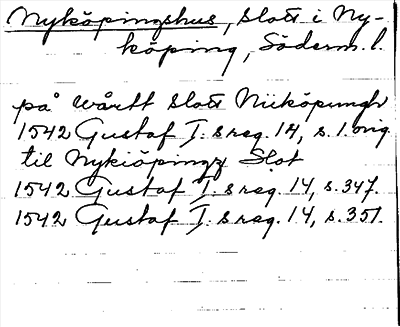 Nyköpingshus, slott i Ny-
köping, Söderm. l.
på wårtt slott Niiköpungh
1542 Gustaf I:s reg. 14, s. 1. orig
til Nykiöpingz Slot
1542 Gustaf I:s reg. 14, s. 347.
1542 Gustaf I:s reg. 14, s. 351.